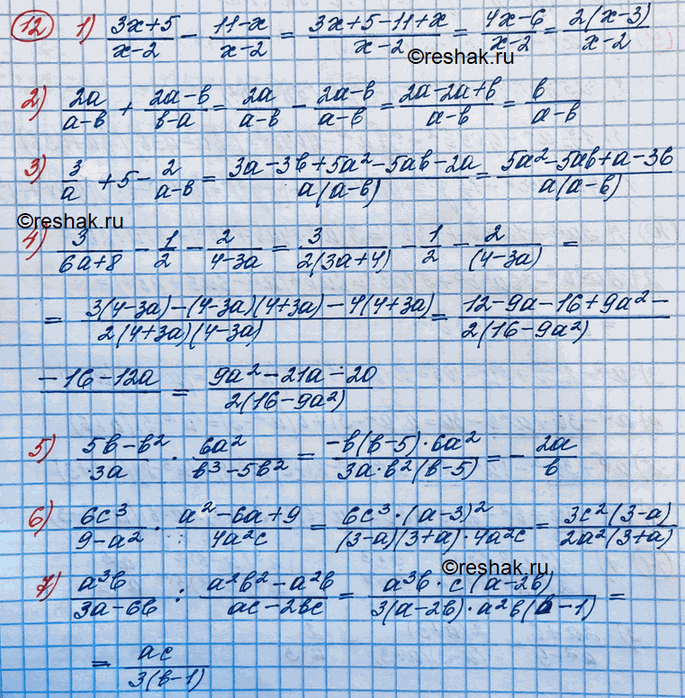 12 1) (3x+5)/(x-2) - (11-x)/(x-2) = (3x+5-11+x)/(x-2) = (4x-6)/(x-2) = 2(x-3)/(x-2)
©reshak.ru
2) 2a/(a-b) + (2a-b)/(b-a) = 2a/(a-b) - (2a-b)/(a-b) = (2a-2a+b)/(a-b) = b/(a-b)
3) 3/a + 5 - 2/(a-b) = (3a-3b+5a²-5ab-2a)/(a(a-b)) = (5a²-5ab+a-3b)/(a(a-b))
©reshak.ru
4) 3/(6a+8) - 1/2 - 2/(4-3a) = 3/(2(3a+4)) - 1/2 - 2/(4-3a) =
= (3(4-3a)-(4-3a)(4+3a)-4(4+3a))/(2(4+3a)(4-3a)) = (12-9a-16+9a²-)/(2(16-9a²))
-16-12a = (9a²-21a-20)/(2(16-9a²))
5) (5b-b²)/3a · 6a²/(b³-5b²) = (-b(b-5)·6a²)/(3a·b²(b-5)) = - 2a/b
6) 6c³/(9-a²) · (a²-6a+9)/4a²c = (6c³·(a-3)²)/((3-a)(3+a)·4a²c) = 3c²(3-a)/(2a²(3+a))
©reshak.ru
7) a³b/(3a-6b) : (a²b²-a²b)/(ac-2bc) = (a³b·c(a-2b))/(3(a-2b)·a²b(b-1)) =
= ac/(3(b-1))